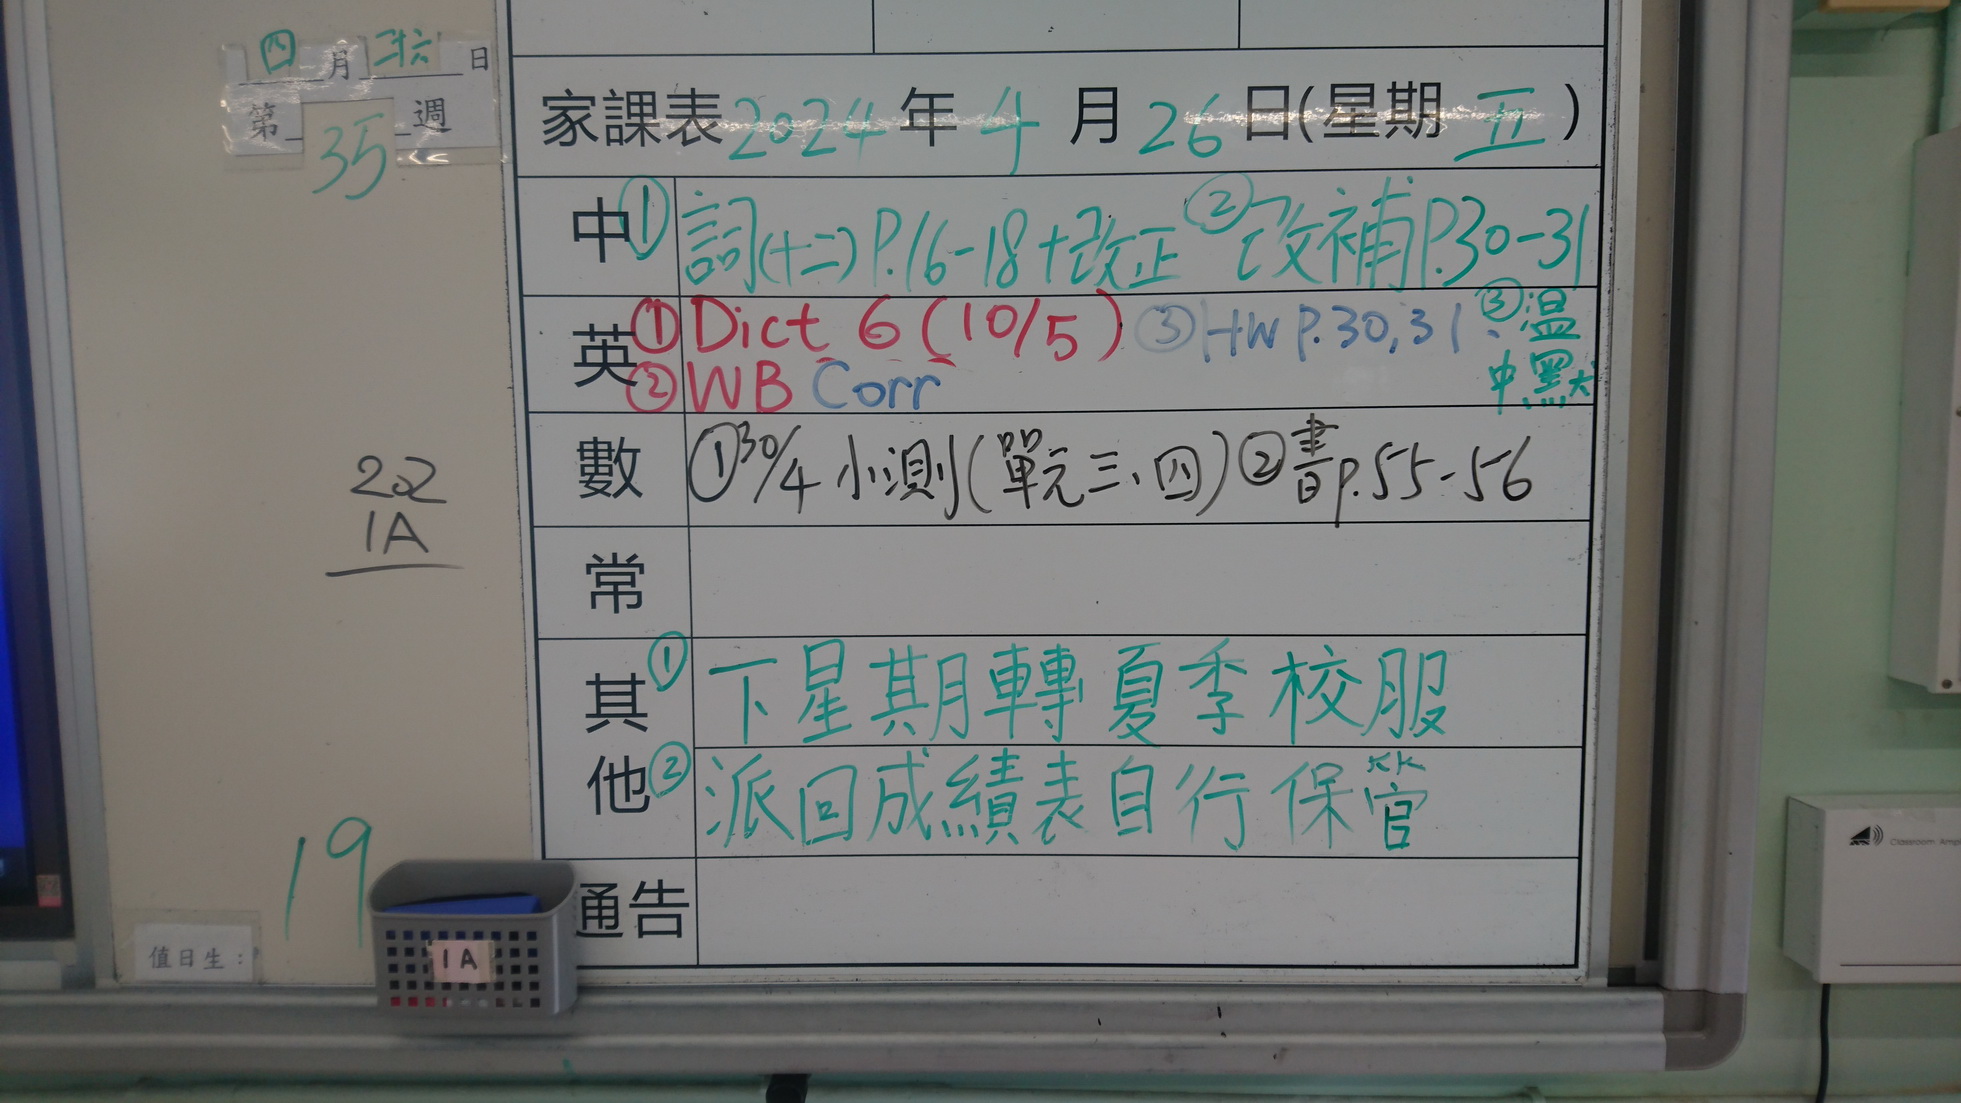 四月二十六日
第35週
家課表2024年4月26日(星期五)
中①詞(十二)P.16-18+改正 ②改補P.30-31
③溫中默
英①Dict 6 (10/5) ③HW P.30,31
②WB Corr
數①30/4 小測(單元三、四)②書p.55-56
常
其他
①下星期轉夏季校服
②派回成績表自行保管
通告
202
1A
19
值日生:
1A
Classroom Ampl